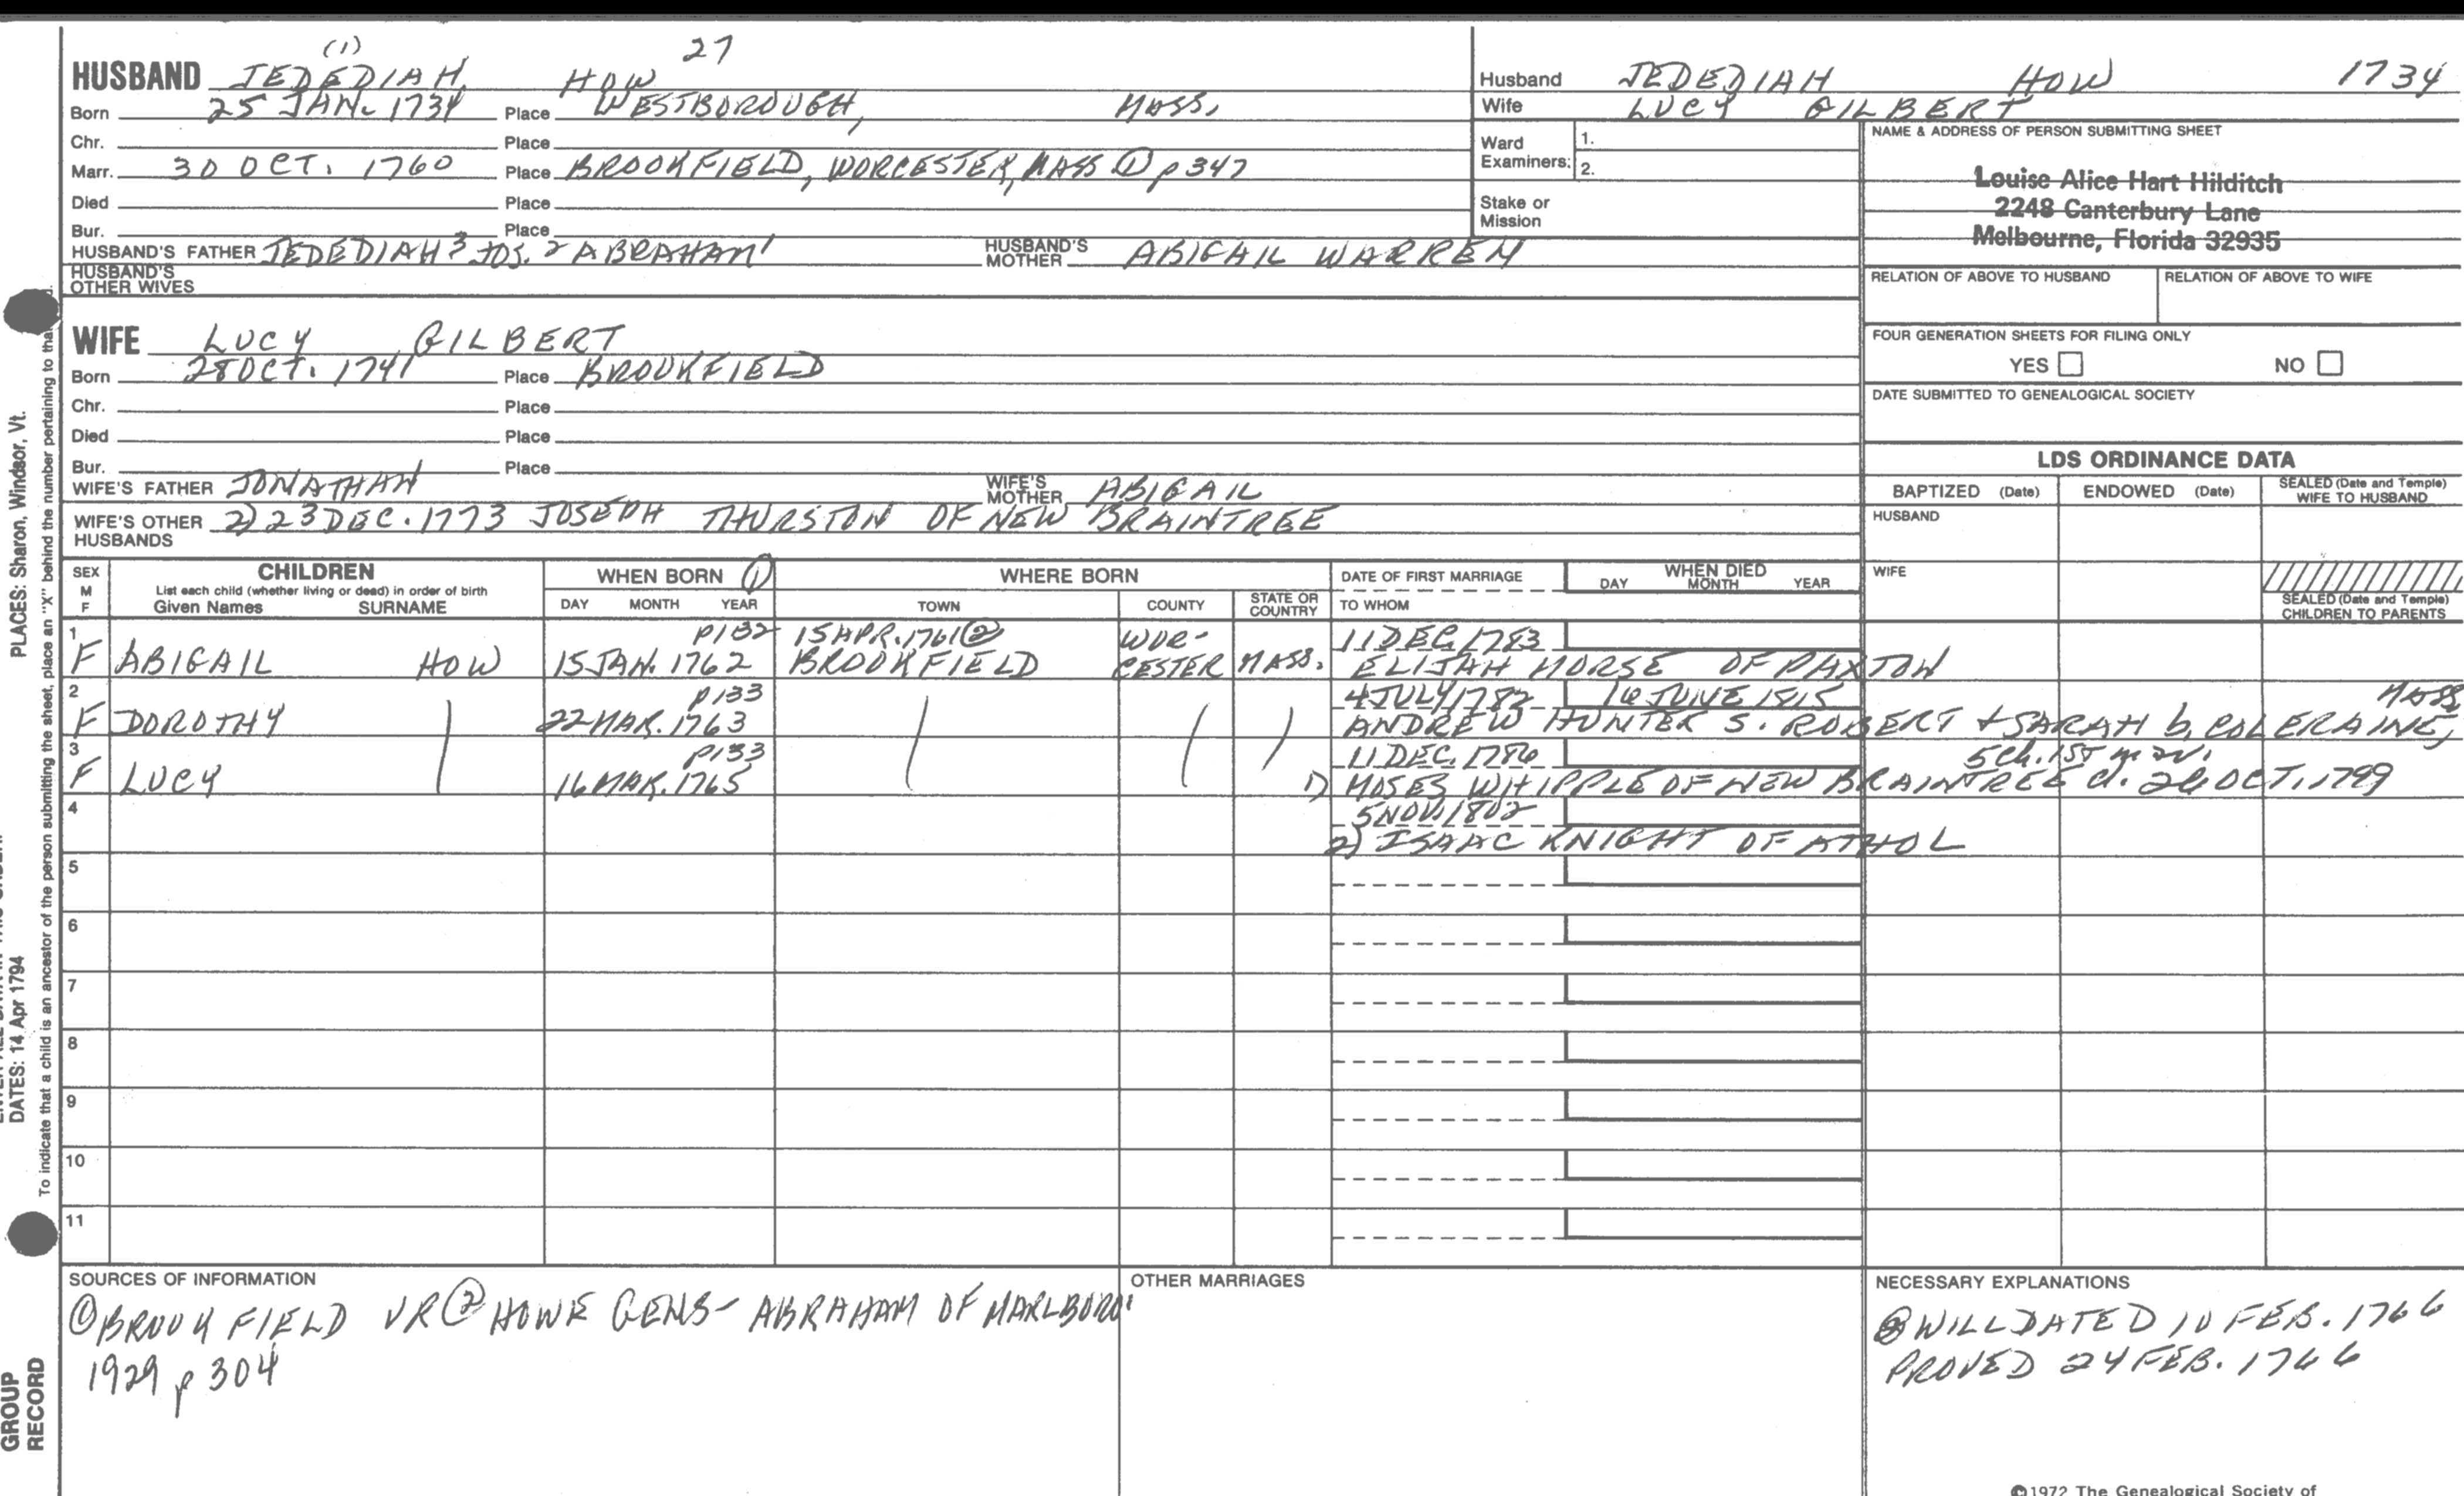 (1) 27
HUSBAND JEDEDIAH HOW
Born 25 JAN. 1734 Place WESTBOROUGH, MASS.
Chr. Place
Marr. 30 OCT. 1760 Place BROOKFIELD, WORCESTER, MASS ① p 347
Died Place
Bur. Place
HUSBAND'S FATHER JEDEDIAH 3 JOS. 2 ABRAHAM 1 HUSBAND'S MOTHER ABIGAIL WARREN
HUSBAND'S OTHER WIVES
Husband JEDEDIAH HOW 1734
Wife LUCY GILBERT
Ward Examiners: 1.
2.
Stake or Mission
NAME & ADDRESS OF PERSON SUBMITTING SHEET
Louise Alice Hart Hilditch
2248 Canterbury Lane
Melbourne, Florida 32935
RELATION OF ABOVE TO HUSBAND RELATION OF ABOVE TO WIFE
FOUR GENERATION SHEETS FOR FILING ONLY
YES NO
DATE SUBMITTED TO GENEALOGICAL SOCIETY
WIFE LUCY GILBERT
Born 28 OCT. 1741 Place BROOKFIELD
Chr. Place
Died Place
Bur. Place
WIFE'S FATHER JONATHAN WIFE'S MOTHER ABIGAIL
WIFE'S OTHER HUSBANDS 2) 23 DEC. 1773 JOSEPH THURSTON OF NEW BRAINTREE
LDS ORDINANCE DATA
BAPTIZED (Date) ENDOWED (Date) SEALED (Date and Temple) WIFE TO HUSBAND
HUSBAND
WIFE
SEALED (Date and Temple) CHILDREN TO PARENTS
SEX M F CHILDREN WHEN BORN ① WHERE BORN DATE OF FIRST MARRIAGE WHEN DIED
List each child (whether living or dead) in order of birth
Given Names SURNAME DAY MONTH YEAR TOWN COUNTY STATE OR COUNTRY TO WHOM DAY MONTH YEAR
1 P132 15 APR. 1761 ② WOR- 11 DEC. 1783
F ABIGAIL HOW 15 JAN. 1762 BROOKFIELD CESTER MASS. ELIJAH MORSE OF PAXTON
2 P133 4 JULY 1782 16 JUNE 1815 MASS
F DOROTHY 22 MAR. 1763 ANDREW HUNTER S. ROBERT + SARAH b. COLERAINE,
3 P133 11 DEC. 1786 5 ch. 1ST m
F LUCY 16 MAR. 1765 1) MOSES WHIPPLE OF NEW BRAINTREE d. 26 OCT. 1799
4 5 NOV. 1802
2) ISAAC KNIGHT OF ATHOL
5
6
7
8
9
10
11
SOURCES OF INFORMATION
① BROOKFIELD VR ② HOWE GENS- ABRAHAM OF MARLBORO
1929 p 304
OTHER MARRIAGES
NECESSARY EXPLANATIONS
WILL DATED 10 FEB. 1766
PROVED 24 FEB. 1766
©1972 The Genealogical Society of
PLACES: Sharon, Windsor, Vt.
DATES: 14 Apr 1794
To indicate that a child is an ancestor of the person submitting the sheet, place an "X" behind the number pertaining to
GROUP
RECORD